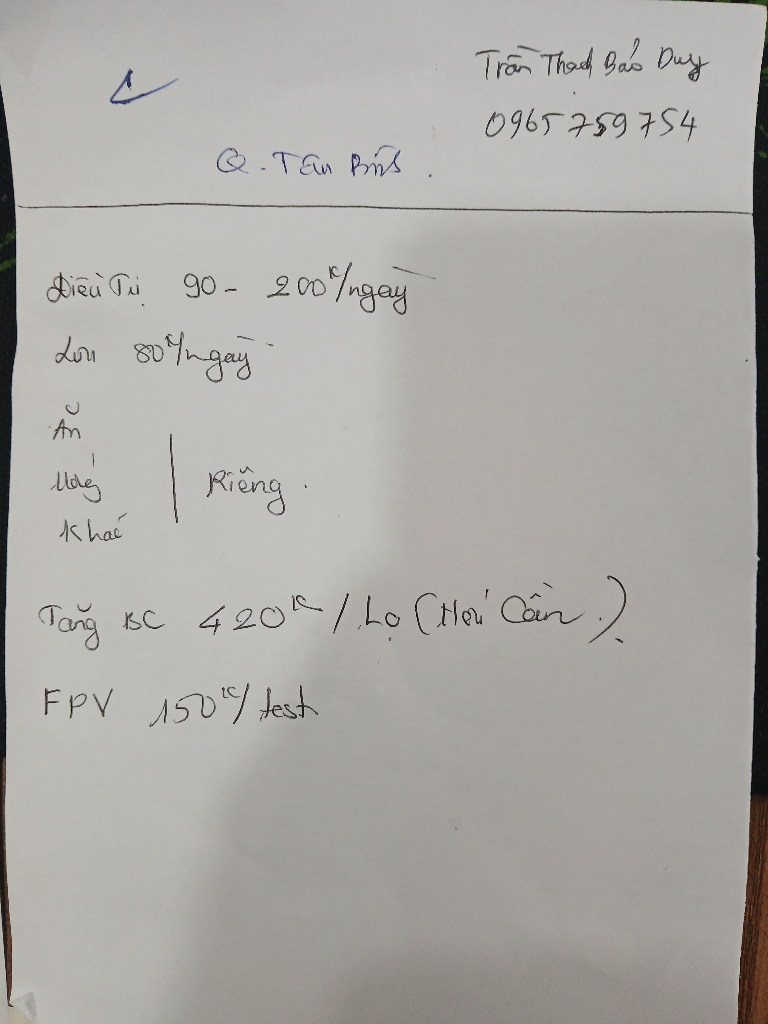 Trần Thạch Bảo Duy
0965759754
Q. Tân Bình.
Điều Trị 90 - 200K/ngày
Lưu 80K/ngày
Ăn
Uống
Khác
Riêng.
Tăng BC 420K/Lọ (Nếu Cần.)
FPV 150K/test